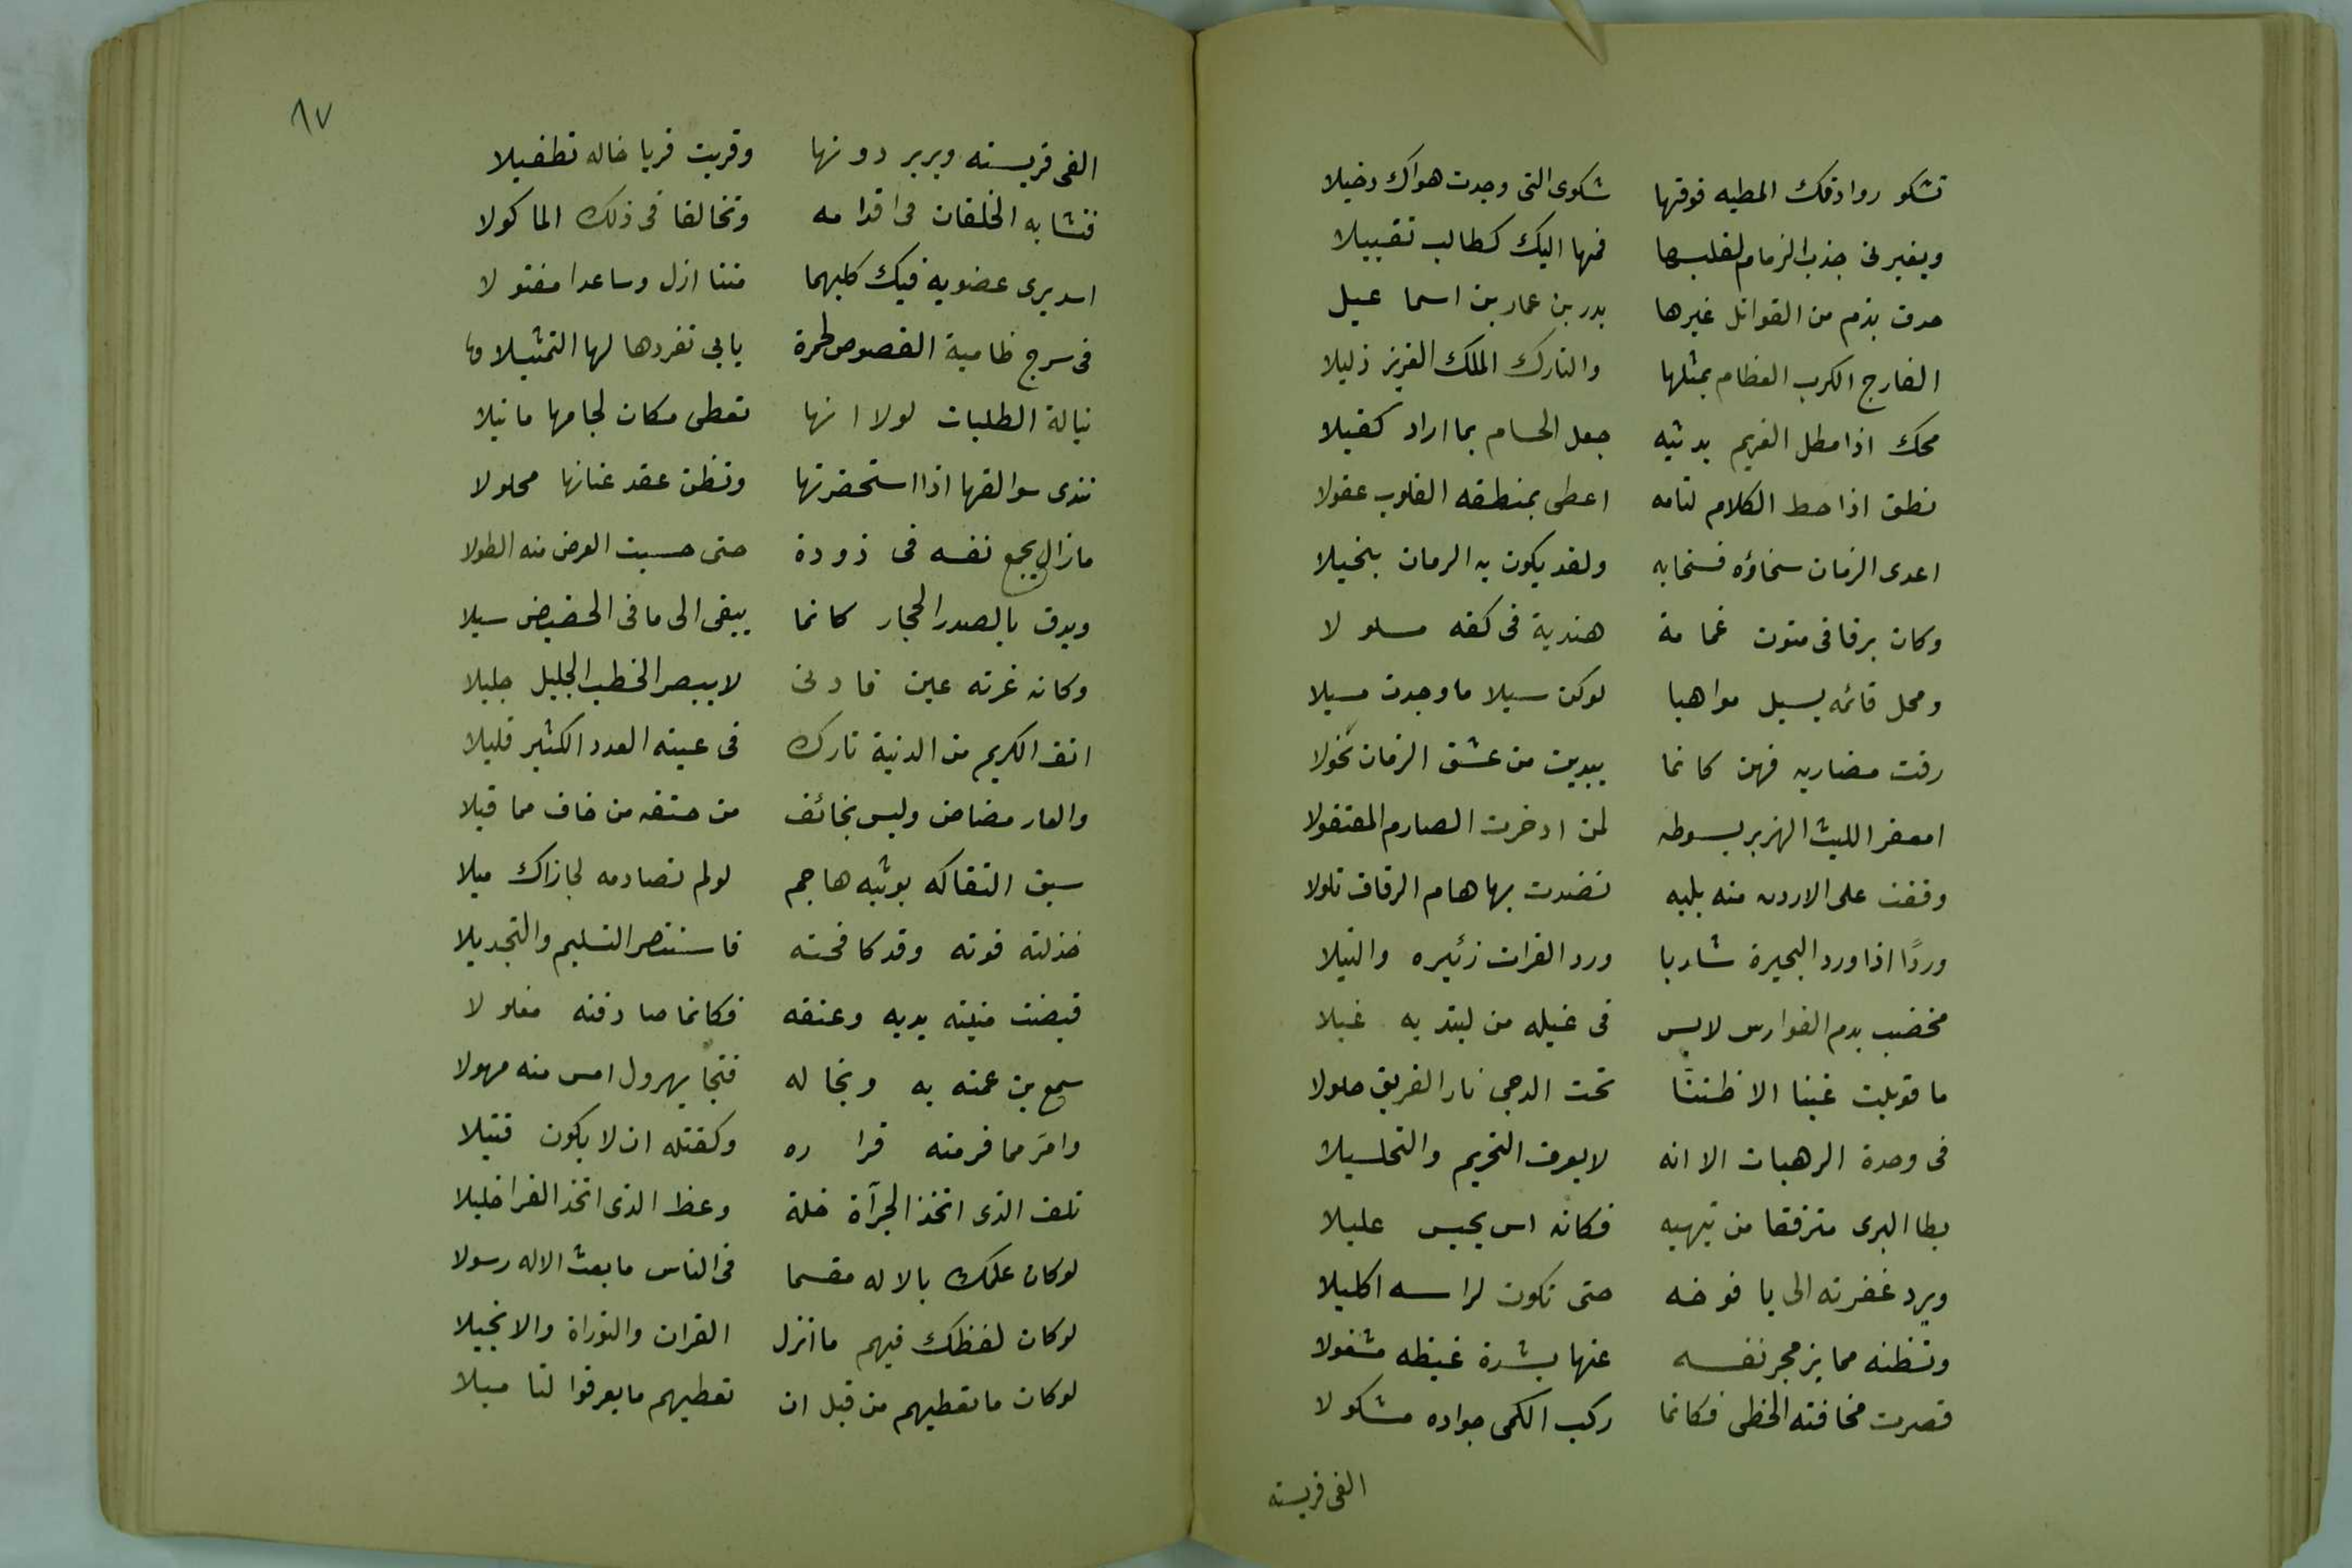 تشكو روادفك المطيه فوقها شكوى التى وجدت هواك دخيلا
ويغيرنى جذب الزمام لقلبها فمها اليك كطالب تقبيلا
حدق يذم من القواتل غيرها بدر بن عمار بن اسماعيل
الفارج الكرب العظام بمثلها والتارك الملك العزيز ذليلا
محك اذا مطل الغريم بدينه جعل الحسام بما اراد كفيلا
نطق اذا حط الكلام لثامه اعطى بمنطقه القلوب عقولا
اعدى الزمان سخاؤه فسخا به ولقد يكون به الزمان بخيلا
وكان برقا فى متون غمامة هندية فى كفه مسلولا
ومحل قائمه يسيل مواهبا لوكن سيلا ما وجدت مسيلا
رقت مضاربه فهن كانما يبدين من عشق الرقاب نخولا
امعفر الليث الهزبر بسوطه لمن ادخرت الصارم المصقولا
وقفت على الاردن منه بليه نضدت بها هام الرفاق تلولا
وردًا اذا ورد البحيرة شاربا ورد الفرات زئيره والنيلا
مخضب بدم الفوارس لابس فى غيله من لبتديه غيلا
ما قوبلت عينا الا ظنتا تحت الدجى نار الفريق حلولا
فى وحدة الرهبان الا انه لا يعرف التحريم والتحليلا
يطا البرى مترفقا من تيهيه فكانه اس يجس عليلا
ويرد غفرته الى يافوخه حتى تكون لراسه اكليلا
وتظنه مما يزمجر نفسه عنها بشدة غيظه مشغولا
قصرت مخافته الخطى فكانما ركب الكمى جواده مشكولا
الفى فريسته
٨٧
الفى فريسته وبربر دونها وقربت قربا خاله تطفيلا
فتشابه الخلقان فى اقدامه وتخالفا فى ذلك الماكولا
اسد يرى عضويه فيك كليهما متنا ازل وساعدا مفتولا
فى سرج ظامية الفصوص طمرة يابى تفردها لها التمثيلا
نيالة الطلبات لولا انها تعطى مكان لجامها ما نيلا
تندى سوالفها اذا استحضرتها وتظن عقد عنانها محلولا
مازال يجمع نفسه فى زوده حتى حسبت العرض منه الطولا
ويدق بالصدر الحجار كانما يبقى الى ما فى الحضيض سبيلا
وكانه غرته عين فادنى لا يبصر الخطب الجليل جليلا
انف الكريم من الدنية تارك فى عينه العدد الكثير قليلا
والعار مضاض وليس بخائف من حتفه من خاف مما قيلا
سبق التقاكه بوثبه هاجم لولم تصادمه لجازاك ميلا
خذلته قوته وقد كافحته فاستنصر التسليم والتجديلا
قبضت منيته يديه وعنقه فكانما صادفته مغلولا
سمع بن عمته به وبحاله فنجا يهرول امس منه مهولا
وامرّ مما فر منه فراره وكقتله ان لا يكون قتيلا
تلف الذى اتخذ الجرآة خلة وعظ الذى اتخذ الفرا خليلا
لوكان علمك بالاله مقسما فى الناس ما بعث الاله رسولا
لوكان لفظك فيهم ما انزل القران والتوراة والانجيلا
لوكان ما تعطيهم من قبل ان تعطيهم ما يعرفوا لتا ميلا